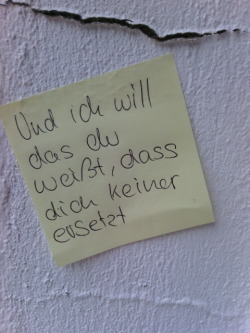 Und ich will
das du
weißt, dass
dich keiner
ersetzt